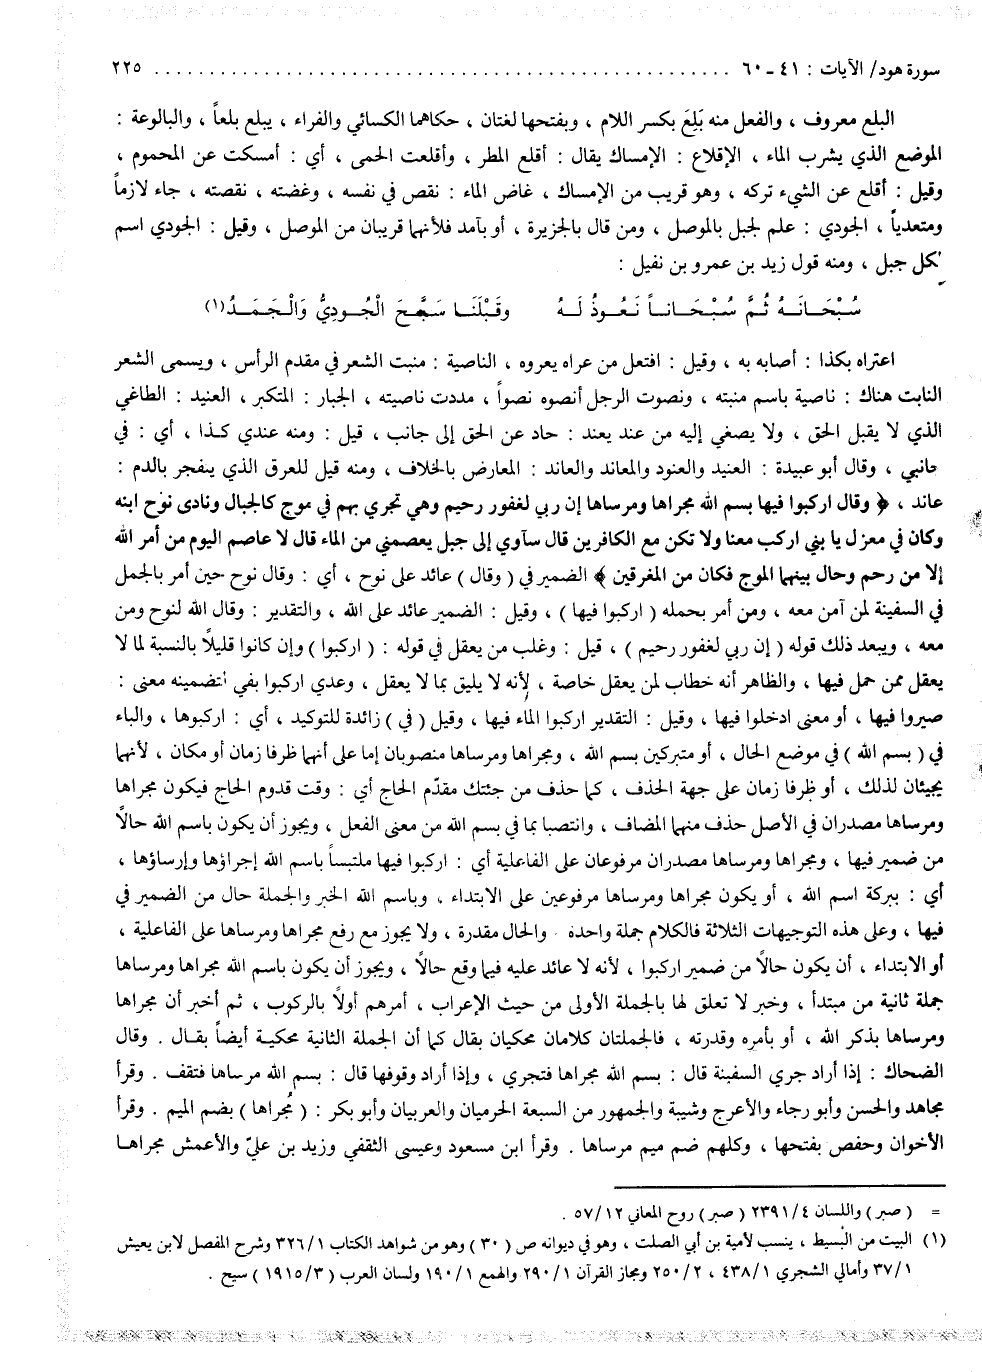 سورة هود/ الآيات : ٤١ - ٦٠ ........................................................ ٢٢٥
البلع معروف ، والفعل منه بَلِعَ بكسر اللام ، وبفتحها لغتان ، حكاهما الكسائي والفراء ، يبلع بلعاً ، والبالوعة :
الموضع الذي يشرب الماء ، الإقلاع : الإمساك يقال : أقلع المطر ، وأقلعت الحمى ، أي : أمسكت عن المحموم ،
وقيل : أقلع عن الشيء تركه ، وهو قريب من الإمساك ، غاض الماء : نقص في نفسه ، وغضته ، نقصته ، جاء لازماً
ومتعدياً ، الجودي : علم لجبل بالموصل ، ومن قال بالجزيرة ، أو بآمد فلأنهما قريبان من الموصل ، وقيل : الجودي اسم
لكل جبل ، ومنه قول زيد بن عمرو بن نفيل :
سُبْحَانَهُ ثُمَّ سُبْحَاناً نَعُوذُ لَهُ وقَبْلَنَا سَبَّحَ الْجُودِيُّ وَالْجَمَدُ(١)
اعتراه بكذا : أصابه به ، وقيل : افتعل من عراه يعروه ، الناصية : منبت الشعر في مقدم الرأس ، ويسمى الشعر
النابت هناك : ناصية باسم منبته ، ونصوت الرجل أنصوه نصواً ، مددت ناصيته ، الجبار : المتكبر ، العنيد : الطاغي
الذي لا يقبل الحق ، ولا يصغي إليه من عند يعند : حاد عن الحق إلى جانب ، قيل : ومنه عندي كذا ، أي : في
جانبي ، وقال أبو عبيدة : العنيد والعنود والمعاند والعاند : المعارض بالخلاف ، ومنه قيل للعرق الذي ينفجر بالدم :
عاند ، ﴿ وقال اركبوا فيها بسم الله مجراها ومرساها إن ربي لغفور رحيم وهي تجري بهم في موج كالجبال ونادى نوح ابنه
وكان في معزل يا بني اركب معنا ولا تكن مع الكافرين قال سآوي إلى جبل يعصمني من الماء قال لا عاصم اليوم من أمر الله
إلا من رحم وحال بينهما الموج فكان من المغرقين ﴾ الضمير في ( وقال ) عائد على نوح ، أي : وقال نوح حين أمر بالحمل
في السفينة لمن آمن معه ، ومن أمر بحمله ( اركبوا فيها ) ، وقيل : الضمير عائد على الله ، والتقدير : وقال الله لنوح ومن
معه ، ويبعد ذلك قوله ( إن ربي لغفور رحيم ) ، قيل : وغلب من يعقل في قوله : ( اركبوا ) وإن كانوا قليلاً بالنسبة لما لا
يعقل ممن حمل فيها ، والظاهر أنه خطاب لمن يعقل خاصة ، لأنه لا يليق بما لا يعقل ، وعدي اركبوا بفي لتضمينه معنى :
صيروا فيها ، أو معنى ادخلوا فيها ، وقيل : التقدير اركبوا الماء فيها ، وقيل ( في ) زائدة للتوكيد ، أي : اركبوها ، والباء
في ( بسم الله ) في موضع الحال ، أو متبركين بسم الله ، ومجراها ومرساها منصوبان إما على أنهما ظرفا زمان أو مكان ، لأنهما
يجيئان لذلك ، أو ظرفا زمان على جهة الحذف ، كما حذف من جئتك مقدّم الحاج أي : وقت قدوم الحاج فيكون مجراها
ومرساها مصدران في الأصل حذف منهما المضاف ، وانتصبا بما في بسم الله من معنى الفعل ، ويجوز أن يكون باسم الله حالاً
من ضمير فيها ، ومجراها ومرساها مصدران مرفوعان على الفاعلية أي : اركبوا فيها ملتبساً باسم الله إجراؤها وإرساؤها ،
أي : ببركة اسم الله ، أو يكون مجراها ومرساها مرفوعين على الابتداء ، وباسم الله الخبر والجملة حال من الضمير في
فيها ، وعلى هذه التوجيهات الثلاثة فالكلام جملة واحدة والحال مقدرة ، ولا يجوز مع رفع مجراها ومرساها على الفاعلية ،
أو الابتداء ، أن يكون حالاً من ضمير اركبوا ، لأنه لا عائد عليه فيما وقع حالاً ، ويجوز أن يكون باسم الله مجراها ومرساها
جملة ثانية من مبتدأ ، وخبر لا تعلق لها بالجملة الأولى من حيث الإعراب ، أمرهم أولاً بالركوب ، ثم أخبر أن مجراها
ومرساها بذكر الله ، أو بأمره وقدرته ، فالجملتان كلامان محكيان بقال كما أن الجملة الثانية محكية أيضاً بقال . وقال
الضحاك : إذا أراد جري السفينة قال : بسم الله مجراها فتجري ، وإذا أراد وقوفها قال : بسم الله مرساها فتقف . وقرأ
مجاهد والحسن وأبو رجاء والأعرج وشيبة والجمهور من السبعة الحرميان والعربيان وأبو بكر : ( مُجراها ) بضم الميم . وقرأ
الأخوان وحفص بفتحها ، وكلهم ضم ميم مرساها . وقرأ ابن مسعود وعيسى الثقفي وزيد بن عليّ والأعمش مجراها
= ( صبر ) واللسان ٢٣٩١/٤ ( صبر ) روح المعاني ٥٧/١٢ .
(١) البيت من البسيط ، ينسب لأمية بن أبي الصلت ، وهو في ديوانه ص ( ٣٠ ) وهو من شواهد الكتاب ٣٢٦/١ وشرح المفصل لابن يعيش
٣٧/١ وأمالي الشجري ٤٣٨/١ ، ٢٥٠/٢ ومجاز القرآن ٢٩٠/١ والهمع ١٩٠/١ ولسان العرب ( ١٩١٥/٣ ) سيح .